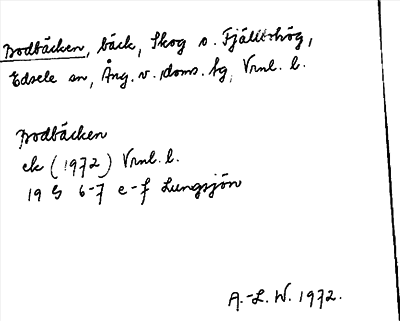 Bodbäcken, bäck, Skog o. Fjällbohög,
Edsele sn, Ång. v. doms. bg, Vrnl. l.
Bodbäcken
ek (1972) Vrnl. l.
19 G 6-7 e-f Lungsjön
A.-L. W. 1972.